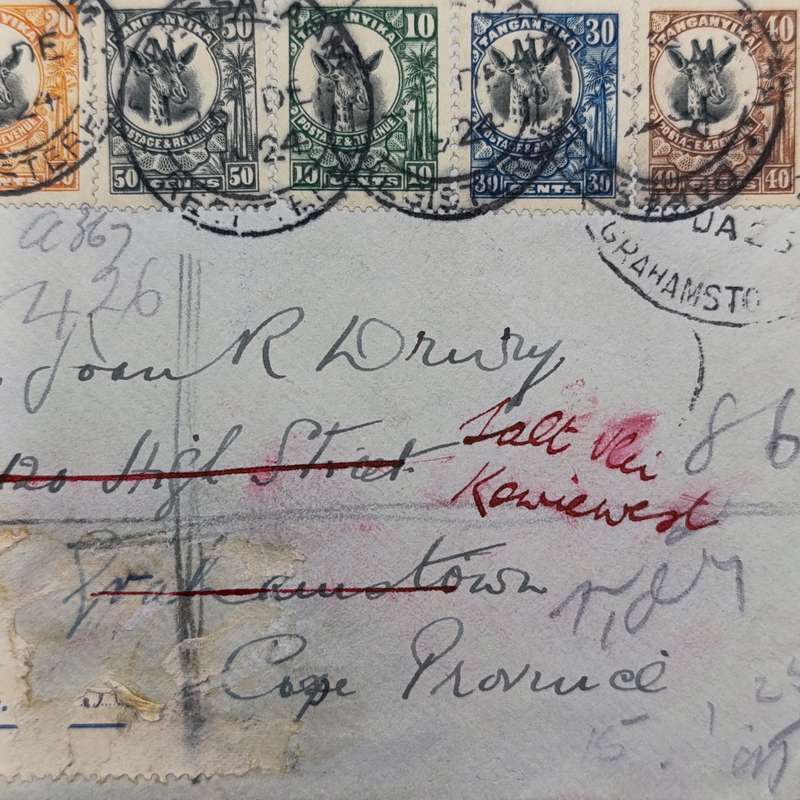 20
50 50
TANGANYIKA
10
TANGANYIKA
30
TANGANYIKA
40
POSTAGE & REVENUE
POSTAGE & REVENUE
POSTAGE & REVENUE
POSTAGE & REVENUE
50 CENTS 50
10 CENTS 10
30 CENTS 30
40 CENTS 40
JA 25
GRAHAMSTO
a 367
426
Joan R Drury
120 High Street
Salt Vlei
Kowiewest
86
Grahamstown
Cape Province
15. 1